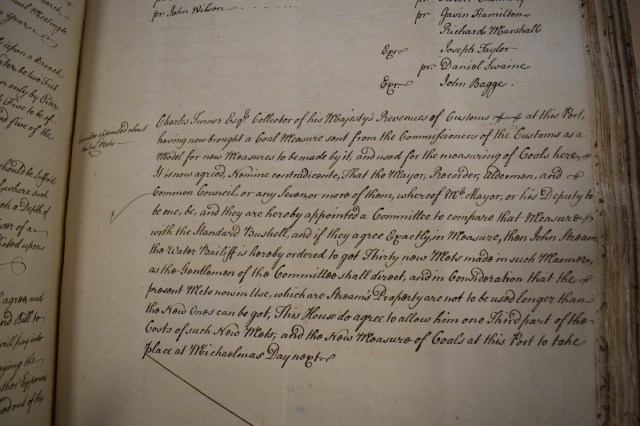 arch
Year
upon a Breach
tex be two Feet
on only by Order
Five to be of
and five of the
should be suffer'd
where each
a Depth of
ver of a
pr John Wilson
pr Gavin Hamilton
Richard Marshall
Exr Joseph Taylor
pr. Daniel Swaine
Exr John Bagge.
Committee appointed about
Mets
Charles Turner Esqr. Collector of his Majesty's Revenues of Customs at this Port,
having now brought a Coal Measure sent from the Commissioners of the Customs as a
Model for new Measures to be made by it, and used for the measuring of Coals here,
It is now agreed, Nemine contradicente, That the Mayor, Recorder, Aldermen, and
Common Council, or any Seven or more of them, whereof Mr. Mayor, or his Deputy to
be one, be, and they are hereby appointed a Committee to compare that Measure
with the Standard Bushell, and if they agree Exactly in Measure, then John Stream
the Water Bailiff is hereby ordered to get Thirty new Mets made in such Manner,
as the Gentlemen of the Committee shall direct, and in Consideration that the
present Mets now in Use, which are Stream's Property are not to be used longer than
the New Ones can be got, This House do agree to allow him one Third part of the
Costs of such New Mets, and the New Measure of Coals at this Port to take
place at Michaelmas Day next.
agree, and
and Bill to
will pay into
paying the
other Expences
out of the